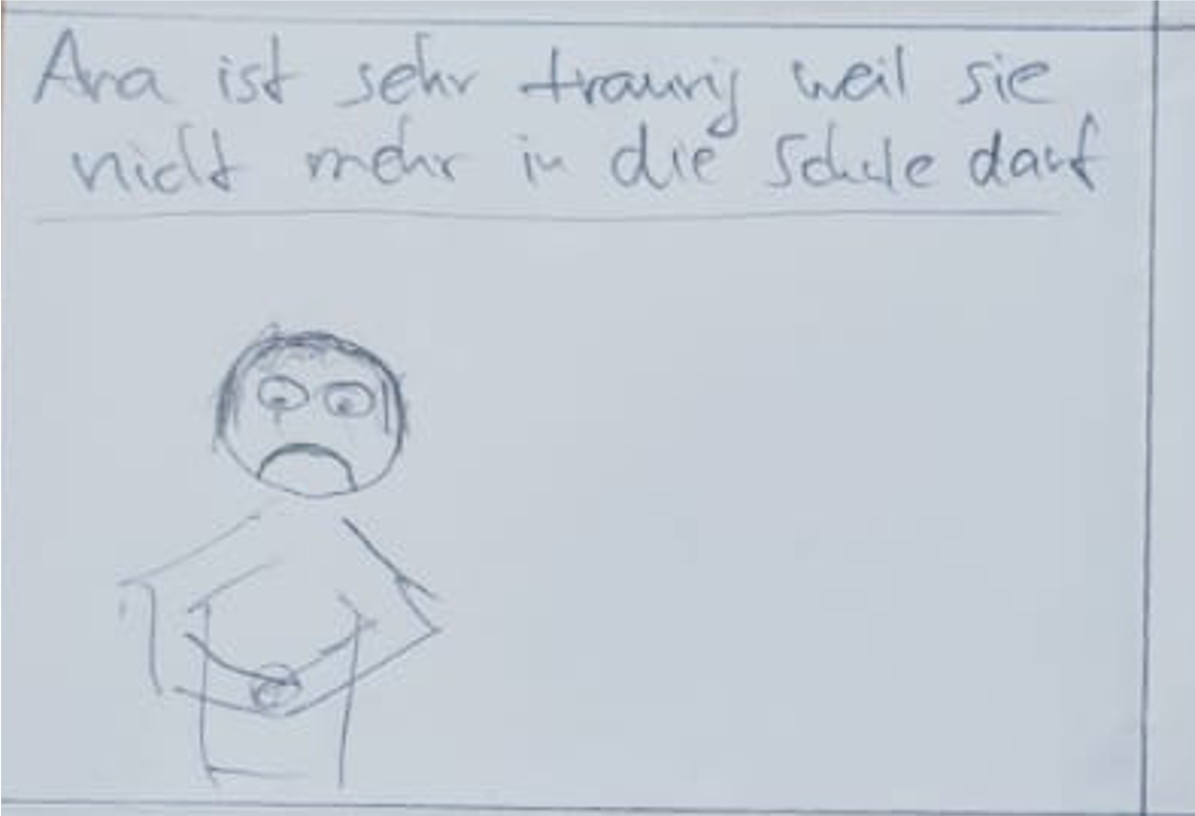 Ara ist sehr traurig weil sie
nicht mehr in die Schule darf